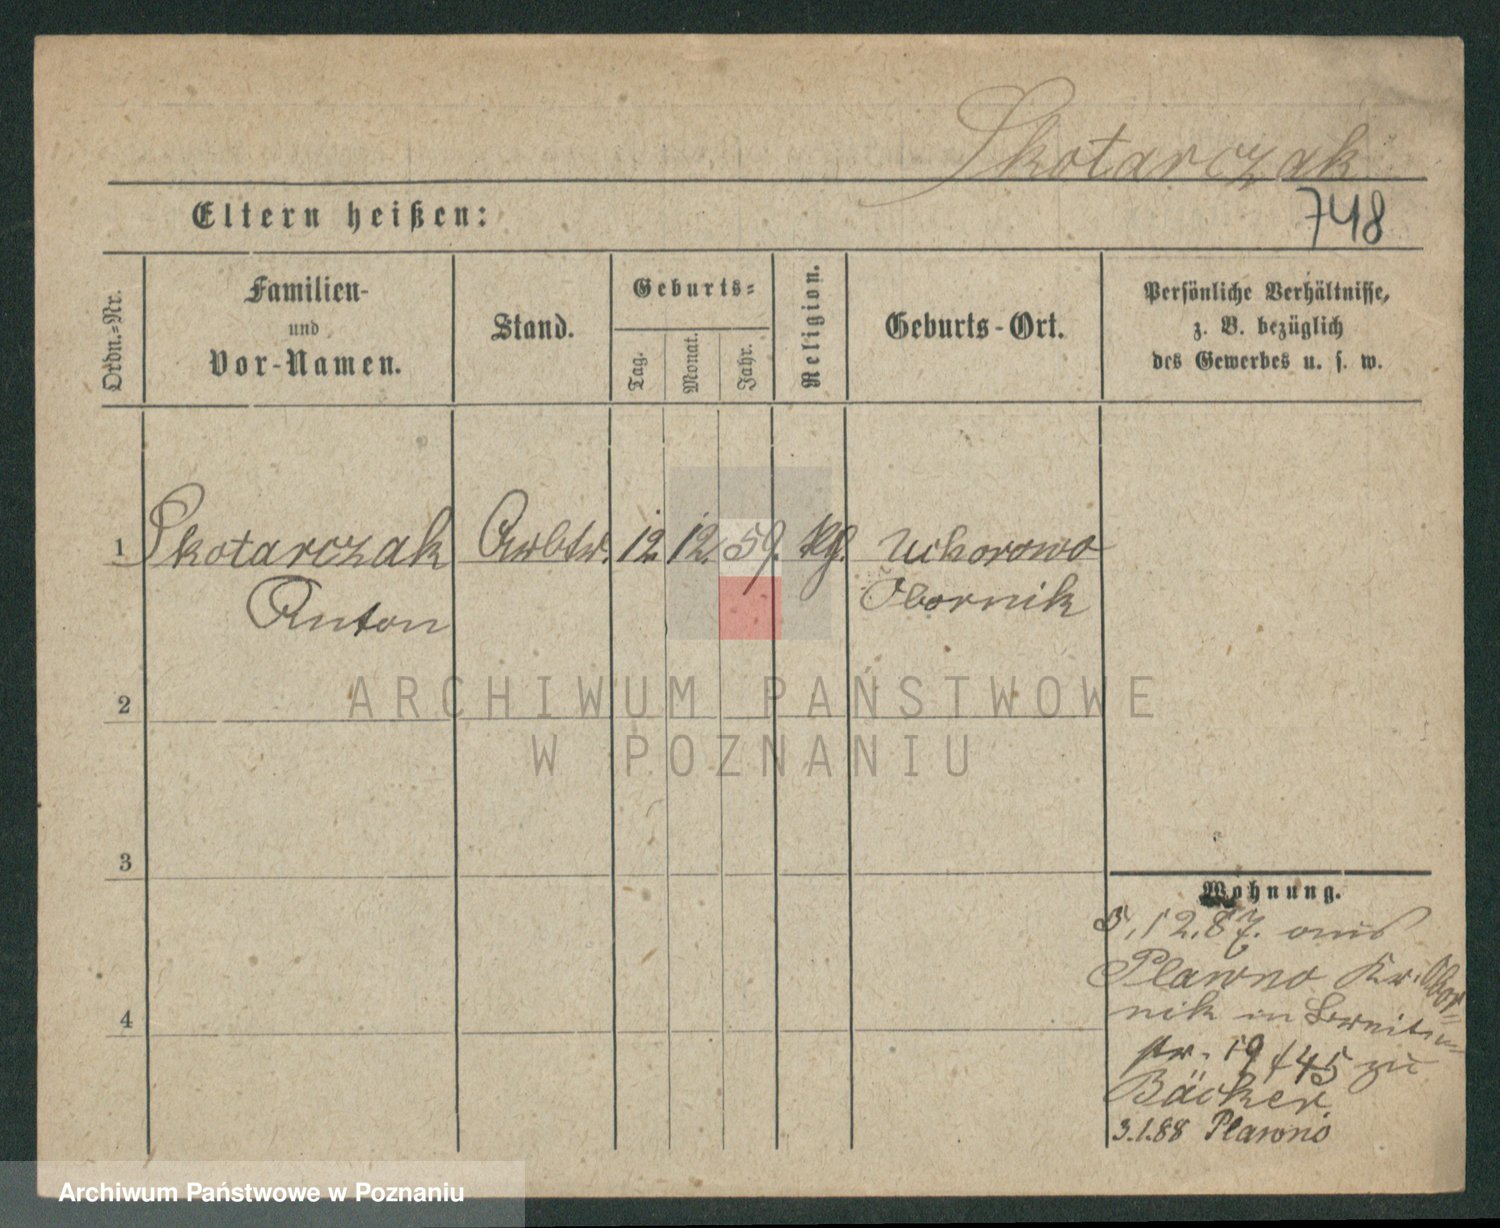 Skotarczak
748
Eltern heißen:
Ordn.-Nr.
Familien-
und
Vor-Namen.
Stand.
Geburts-
Tag.
Monat.
Jahr.
Religion.
Geburts-Ort.
Persönliche Verhältnisse,
z. B. bezüglich
des Gewerbes u. s. w.
1 Skotarczak Arbtr. 12. 12. 59. kg. Uchorowo
Anton Obornik
ARCHIWUM PAŃSTWOWE
W POZNANIU
2
3
4
Wohnung.
5.12.87. aus
Plawno Kr. Obor-
nik in
str. 19/45 zu
Bäcker.
3.1.88 Plawno
Archiwum Państwowe w Poznaniu